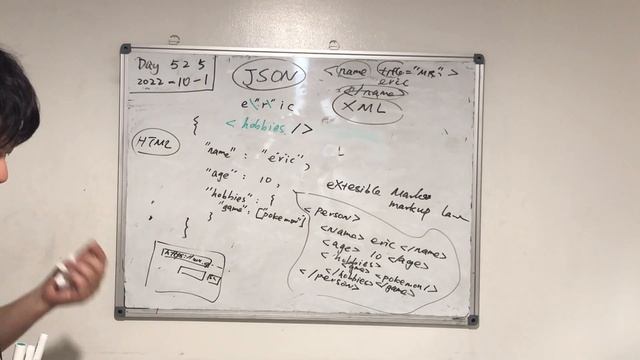 Day 525
2022-10-1
JSON
<name title="MR.">
eric
</name>
XML
e\"H"ic
{
<hobbies />
HTML
"name" : "eric",
"age" : 10,
"hobbies" : {
"game": ["pokemon"]
}
}
exTesible Markup
markup
<person>
<name> eric </name>
<age> 10 </age>
<hobbies>
<game> <pokemon/>
</hobbies> </game>
</person>